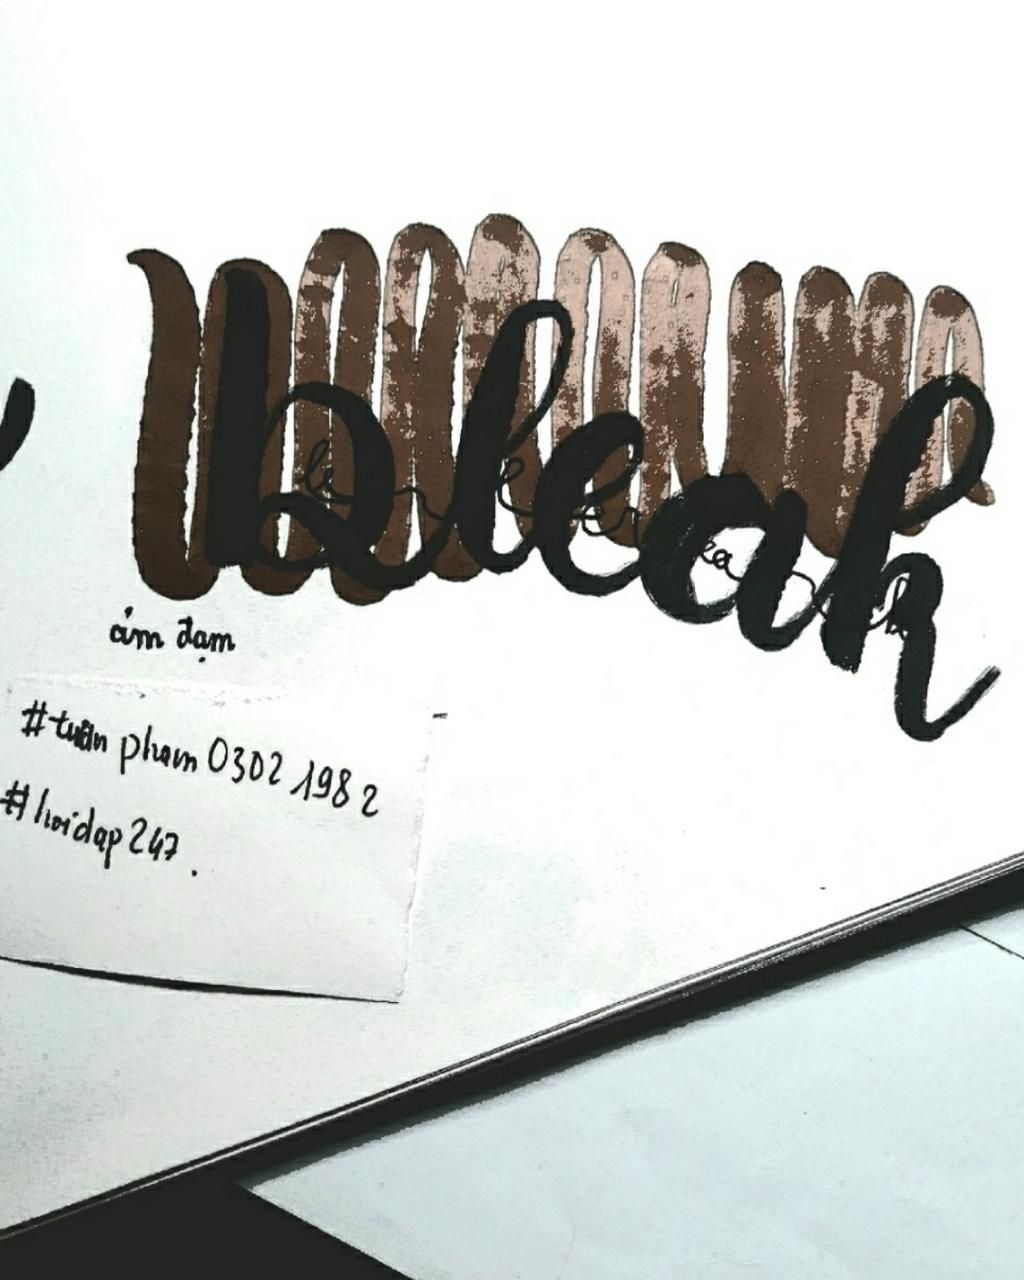 bleak
ảm đạm
#tuấn phạm 0302 1982
#hoidap247.